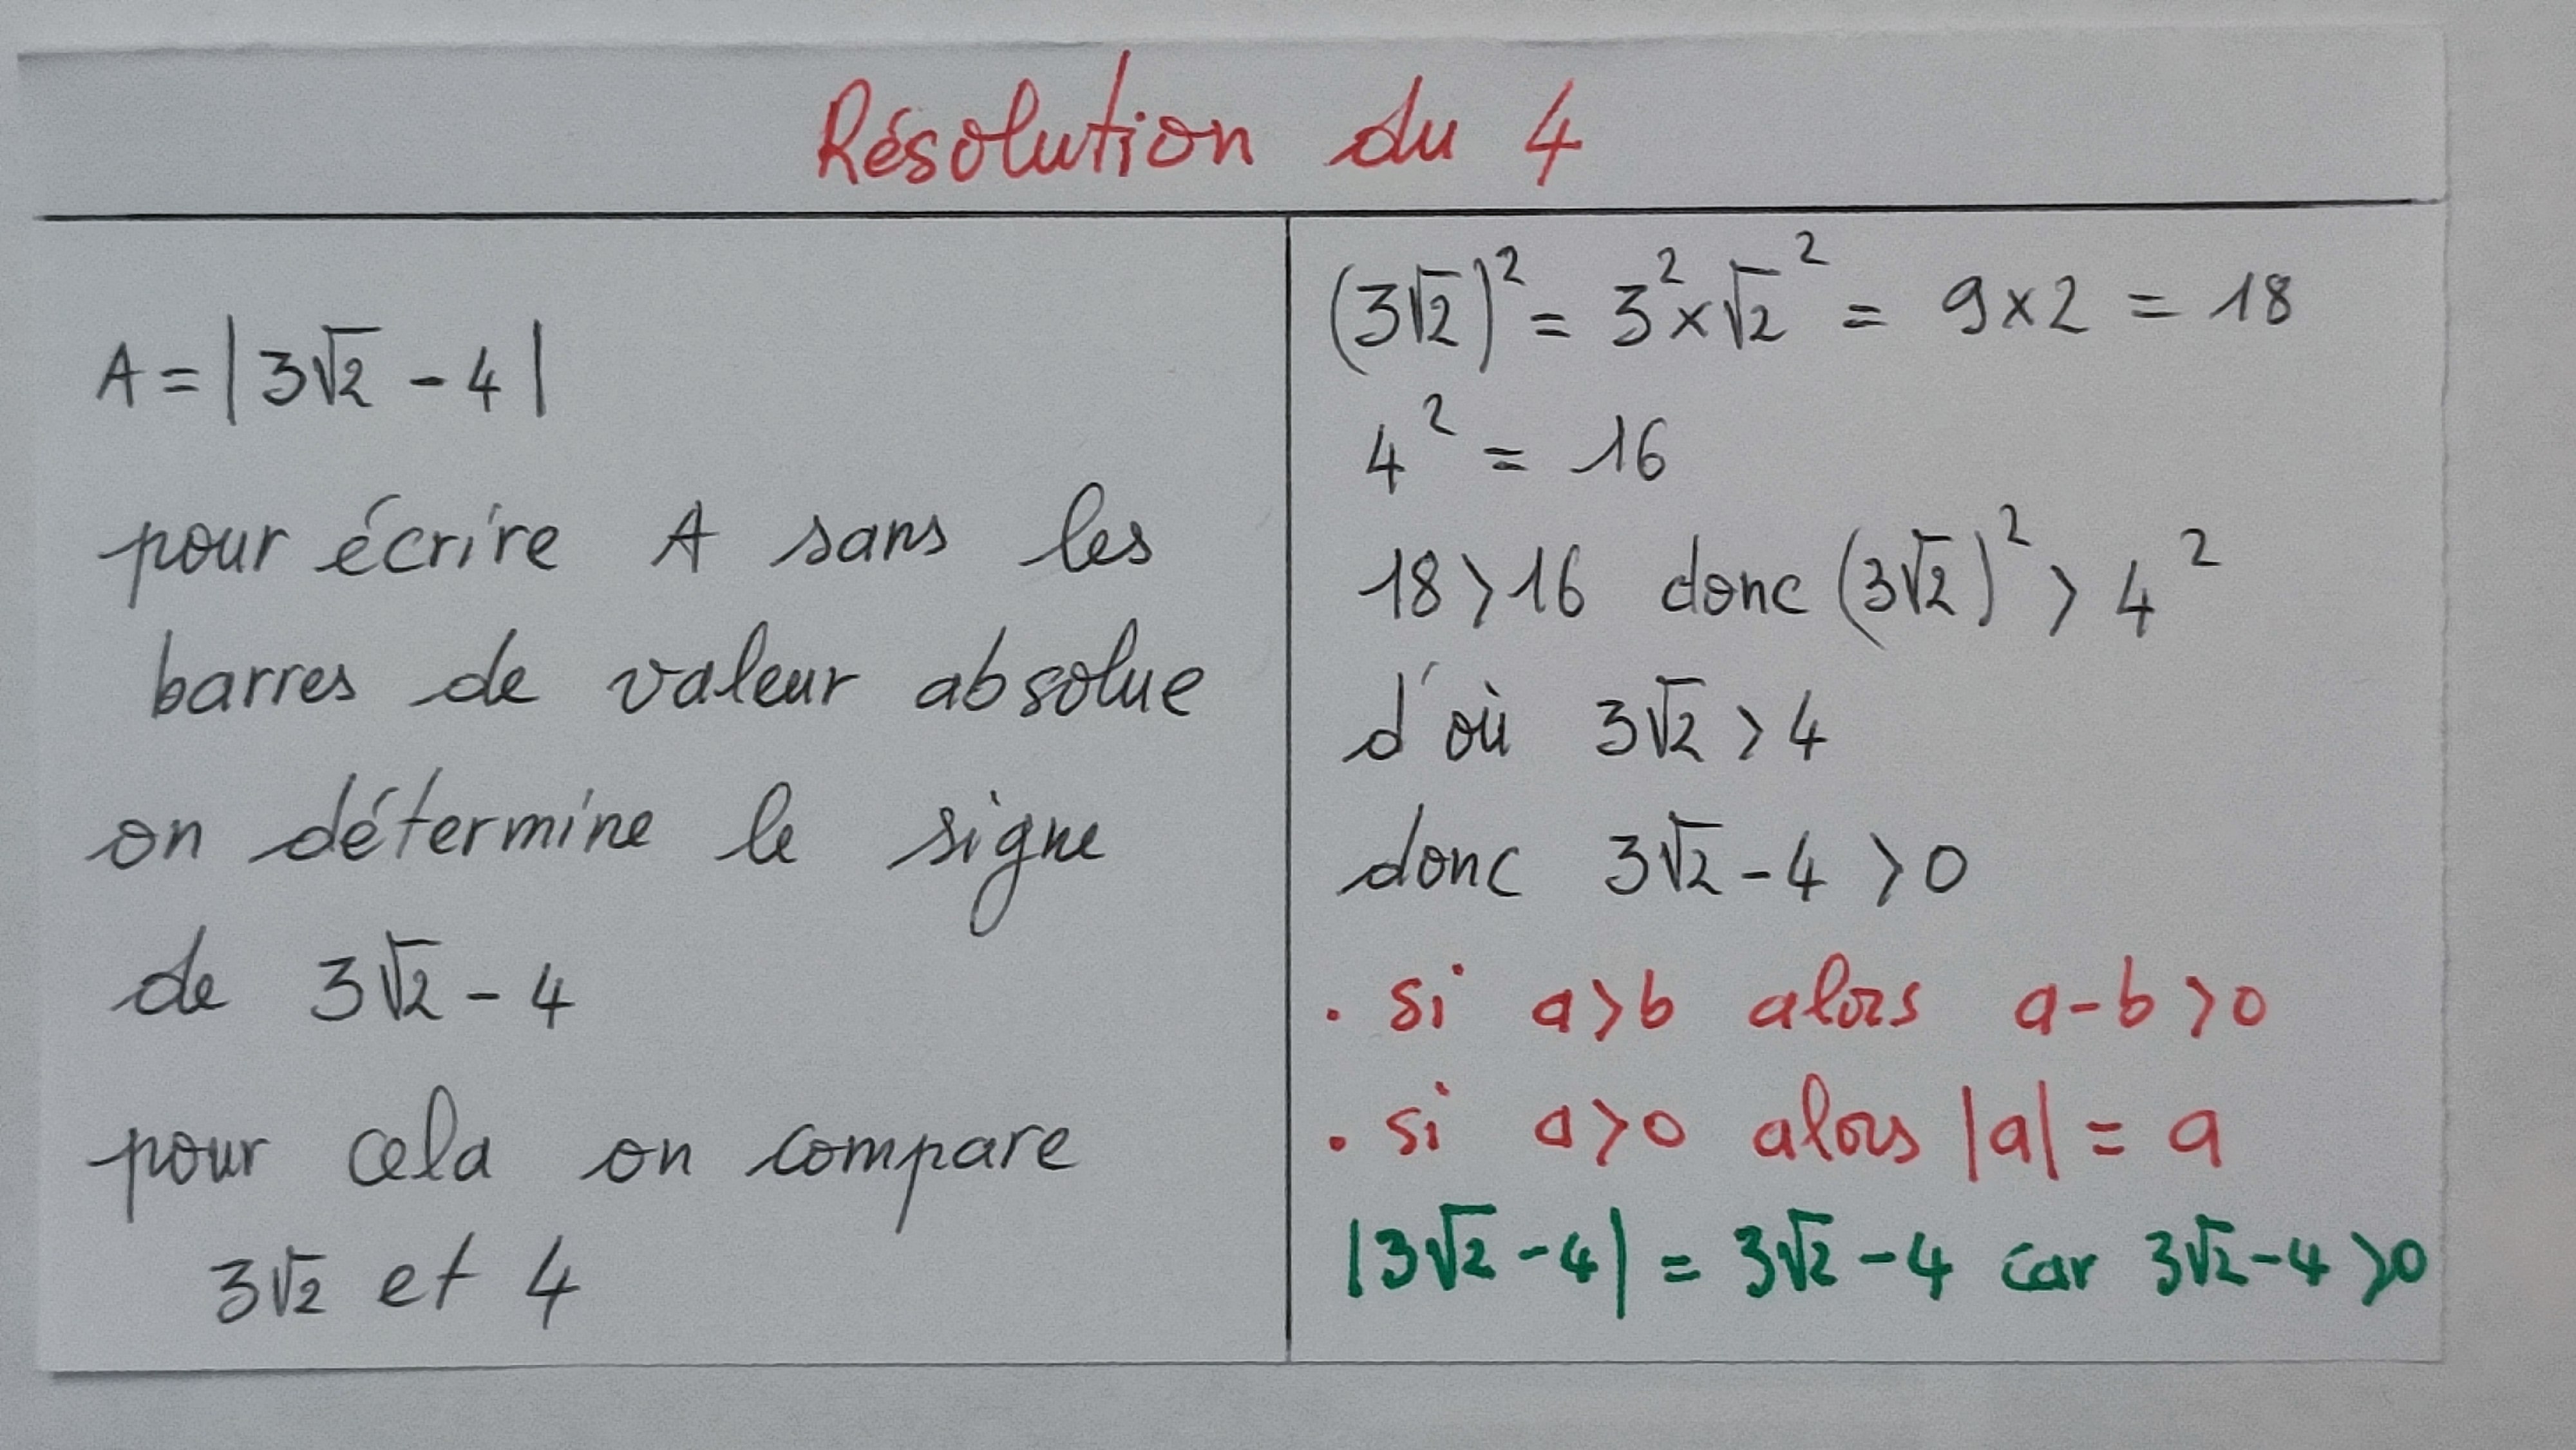 Résolution du 4
A = |3√2 - 4|
pour écrire A sans les
barres de valeur absolue
on détermine le signe
de 3√2 - 4
pour cela on compare
3√2 et 4
(3√2)² = 3² × √2² = 9 × 2 = 18
4² = 16
18 > 16 donc (3√2)² > 4²
d'où 3√2 > 4
donc 3√2 - 4 > 0
. si a > b alors a - b > 0
. si a > 0 alors |a| = a
|3√2 - 4| = 3√2 - 4 car 3√2 - 4 > 0